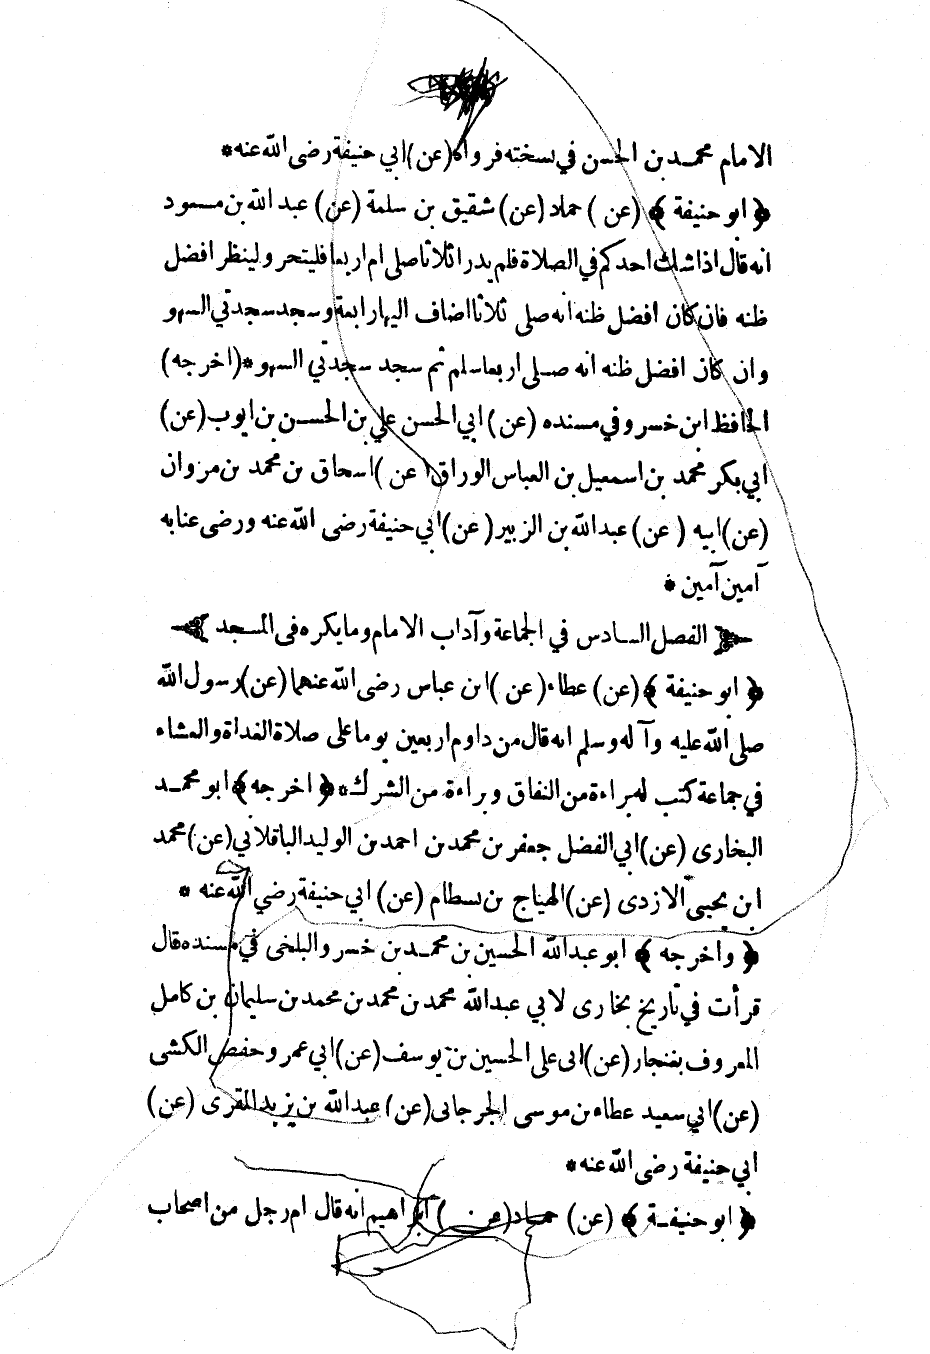 الامام محمد بن الحسن في نسخته فرواه (عن) ابي حنيفة رضى الله عنه *
﴿ ابو حنيفة ﴾ (عن) حماد (عن) شقيق بن سلمة (عن) عبد الله بن مسعود
انه قال اذا شك احدكم في الصلاة فلم يدر اثلاثا صلى ام اربعا فليتحر ولينظر افضل
ظنه فان كان افضل ظنه انه صلى ثلاثا اضاف اليها رابعة وسجد سجدتي السهو
وان كان افضل ظنه انه صلى اربعا سلم ثم سجد سجدتي السهو * (اخرجه)
الحافظ ابن خسرو في مسنده (عن) ابي الحسن علي بن الحسن بن ايوب (عن)
ابي بكر محمد بن اسمعيل بن العباس الوراق (عن) اسحاق بن محمد بن مروان
(عن) ابيه (عن) عبد الله بن الزبير (عن) ابي حنيفة رضى الله عنه ورضى عنا به
آمين آمين *
الفصل السادس في الجماعة وآداب الامام وما يكره فى المسجد
﴿ ابو حنيفة ﴾ (عن) عطاء (عن) ابن عباس رضى الله عنهما (عن) رسول الله
صلى الله عليه وآله وسلم انه قال من داوم اربعين يوما على صلاة الغداة والعشاء
في جماعة كتب له براءة من النفاق وبراءة من الشرك * ﴿ اخرجه ﴾ ابو محمد
البخارى (عن) ابي الفضل جعفر بن محمد بن احمد بن الوليد الباقلاني (عن) محمد
ابن يحيى الازدى (عن) الهياج بن بسطام (عن) ابي حنيفة رضي الله عنه *
﴿ واخرجه ﴾ ابو عبد الله الحسين بن محمد بن خسرو البلخى في مسنده قال
قرأت في تاريخ بخارى لابي عبد الله محمد بن محمد بن محمد بن سليمان بن كامل
المعروف بغنجار (عن) ابى على الحسين بن يوسف (عن) ابي عمر وحفص الكشى
(عن) ابي سعيد عطاء بن موسى الجرجانى (عن) عبد الله بن يزيد المقرى (عن)
ابي حنيفة رضى الله عنه *
﴿ ابو حنيفة ﴾ (عن) حماد (عن) ابراهيم انه قال ام رجل من اصحاب